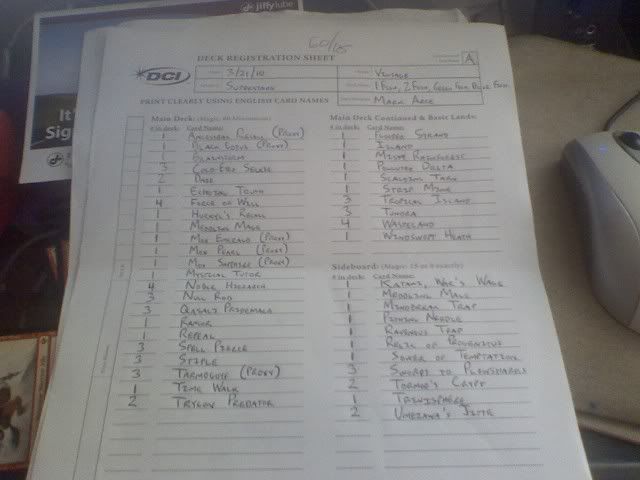 jiffylube
It's
Sig
60/15
DECK REGISTRATION SHEET
A
DCI
3/21/10
Vintage
Superstars
1 Fish, 2 Fish, Green Fish, Blue Fish
PRINT CLEARLY USING ENGLISH CARD NAMES
Mark
Main Deck:
# in deck: Card Name:
1 Ancestral Recall (Proxy)
1 Black Lotus (Proxy)
1 Brainstorm
3 Cold-Eyed Selkie
2 Daze
1 Echoing Truth
4 Force of Will
1 Hurkyl's Recall
1 Meddling Mage
1 Mox Emerald (Proxy)
1 Mox Pearl (Proxy)
1 Mox Sapphire (Proxy)
1 Mystical Tutor
4 Noble Hierarch
3 Null Rod
3 Qasali Pridemage
1
1 Repeal
3 Spell Pierce
3 Stifle
3 Tarmogoyf (Proxy)
1 Time Walk
2 Trygon Predator
Main Deck Continued & Basic Lands:
# in deck: Card Name:
1 Flooded Strand
1 Island
1 Misty Rainforest
1 Polluted Delta
1 Scalding Tarn
1 Strip Mine
3 Tropical Island
3 Tundra
4 Wasteland
1 Windswept Heath
Sideboard:
# in deck: Card Name:
1 Kataki, War's Wage
1 Meddling Mage
1 Mindbreak Trap
1 Pithing Needle
1 Ravenous Trap
1 Relic of Progenitus
1 Sower of Temptation
3 Swords to Plowshares
2 Tormod's Crypt
1 Trinisphere
2 Umezawa's Jitte